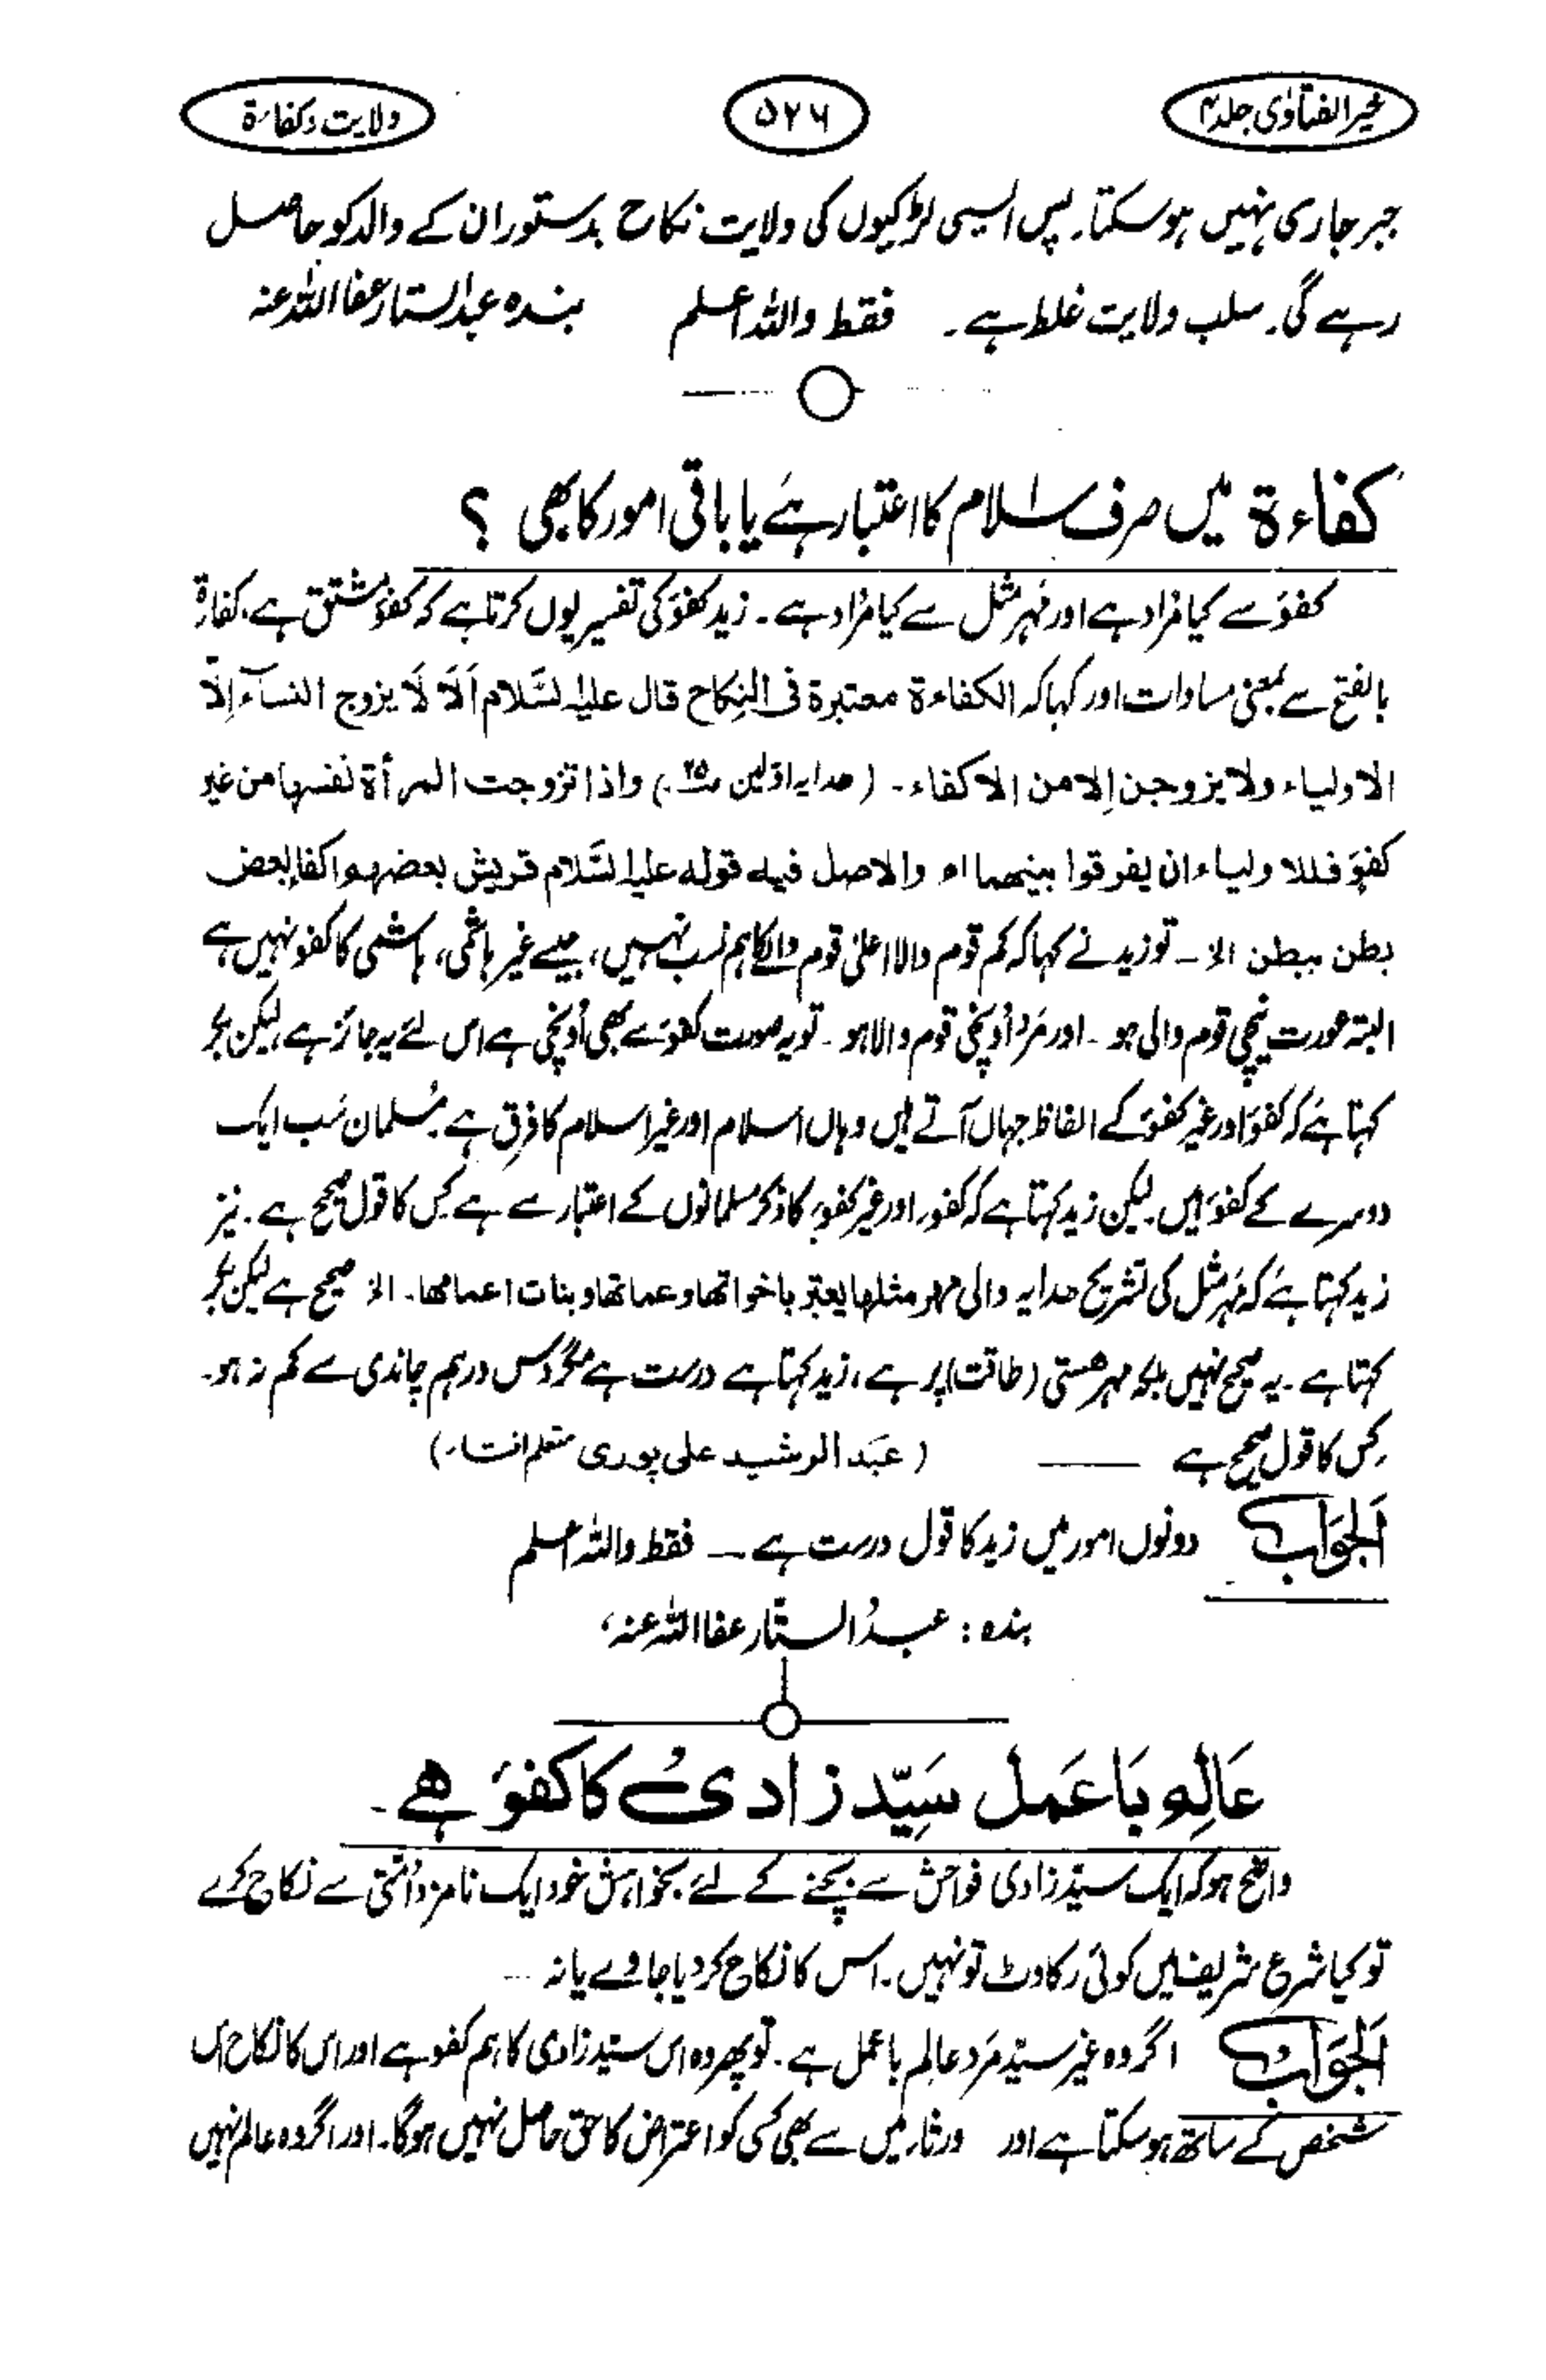 خیر الفتاوٰی جلد ۴
۵۲۶
ولایت و کفاءۃ
جبر جاری نہیں ہو سکتا۔ پس ایسی لڑکیوں کی ولایت نکاح بدستور ان کے والد کو حاصل
رہے گی۔ سلب ولایت غلط ہے۔ فقط واللہ اعلم بندہ عبدالستار عفا اللہ عنہ
کفاءۃ میں صرف اسلام کا اعتبار ہے یا باقی امور کا بھی ؟
کفوَ سے کیا مُراد ہے اور مَہر مثل سے کیا مُراد ہے۔ زید کفوَ کی تفسیر یوں کرتا ہے کہ کفوَ مشتق ہے، کفاءۃ
بالفتح سے بمعنی مساوات اور کہا کہ الکفاءۃ معتبرۃ فی النکاح قال علیہ السَّلام اَلَا لَا یزوج النساءَ اِلّا
الاولیاء ولا یزوجن اِلا من الاکفاء۔ (ھدایہ اوّلین) واذا تزوجت المرأۃ نفسہا من غیر
کفوَ فللاولیاء ان یفرقوا بینھما اھ والاصل فیہ قولہ علیہ السَّلام قریش بعضہم اکفاء لبعض
بطن ببطن الخ ــ تو زید نے کہا کہ کم قوم والا اعلیٰ قوم والے کا ہم نسب نہیں، جیسے غیر ہاشمی، ہاشمی کا کفو نہیں ہے
البتہ عورت نیچی قوم والی ہو۔ اور مَرد اُونچی قوم والا ہو۔ تو یہ صورت کفوَ سے بھی اُونچی ہے اس لئے یہ جائز ہے، لیکن بکر
کہتا ہے کہ کفوَ اور غیر کفوَ کے الفاظ جہاں آتے ہیں وہاں اسلام اور غیر اسلام کا فرق ہے۔ مُسلمان سَب ایک
دوسرے کے کفوَ ہیں۔ لیکن زید کہتا ہے کہ کفوَ اور غیر کفوَ کا ذکر مسلمانوں کے اعتبار سے ہے کس کا قول صحیح ہے۔ نیز
زید کہتا ہے کہ مَہر مثل کی تشریح ھدایہ والی مہر مثلہا یعتبر باخواتھا وعماتھا وبنات اعمامھا۔ الخ صحیح ہے لیکن بکر
کہتا ہے۔ یہ صحیح نہیں بلکہ مہر ھستی (طاقت) پر ہے، زید کہتا ہے درست ہے مگر دس درہم چاندی سے کم نہ ہو۔
کِس کا قول صحیح ہے ــــــ (عبَد الرشید علی پوری متعلم افتاء)
اَلجَوَاب دونوں امور میں زید کا قول درست ہے ــ فقط واللہ اعلم
بندہ : عبدُ الستّار عفا اللہ عنہ،
عَالِم بَا عَمل سَیّد زادیُ کا کفوَ ھے۔
واضح ہو کہ ایک سیّد زادی فواحش سے بچنے کے لئے بخواہش خود ایک نامزد اُمّتی سے نکاح کرے
تو کیا شرع شریف میں کوئی رکاوٹ تو نہیں۔ اس کا نکاح کر دیا جاوے یا نہ
اَلجَوَابُ اگر وہ غیر سیّد مَرد عالِم باعمل ہے۔ تو پھر وہ اس سیّد زادی کا ہم کفو ہے اور اس کا نکاح اس
شخص کے ساتھ ہو سکتا ہے اور ورثاء میں سے بھی کسی کو اعتراض کا حق حاصل نہیں ہوگا۔ اور اگر وہ عالم نہیں